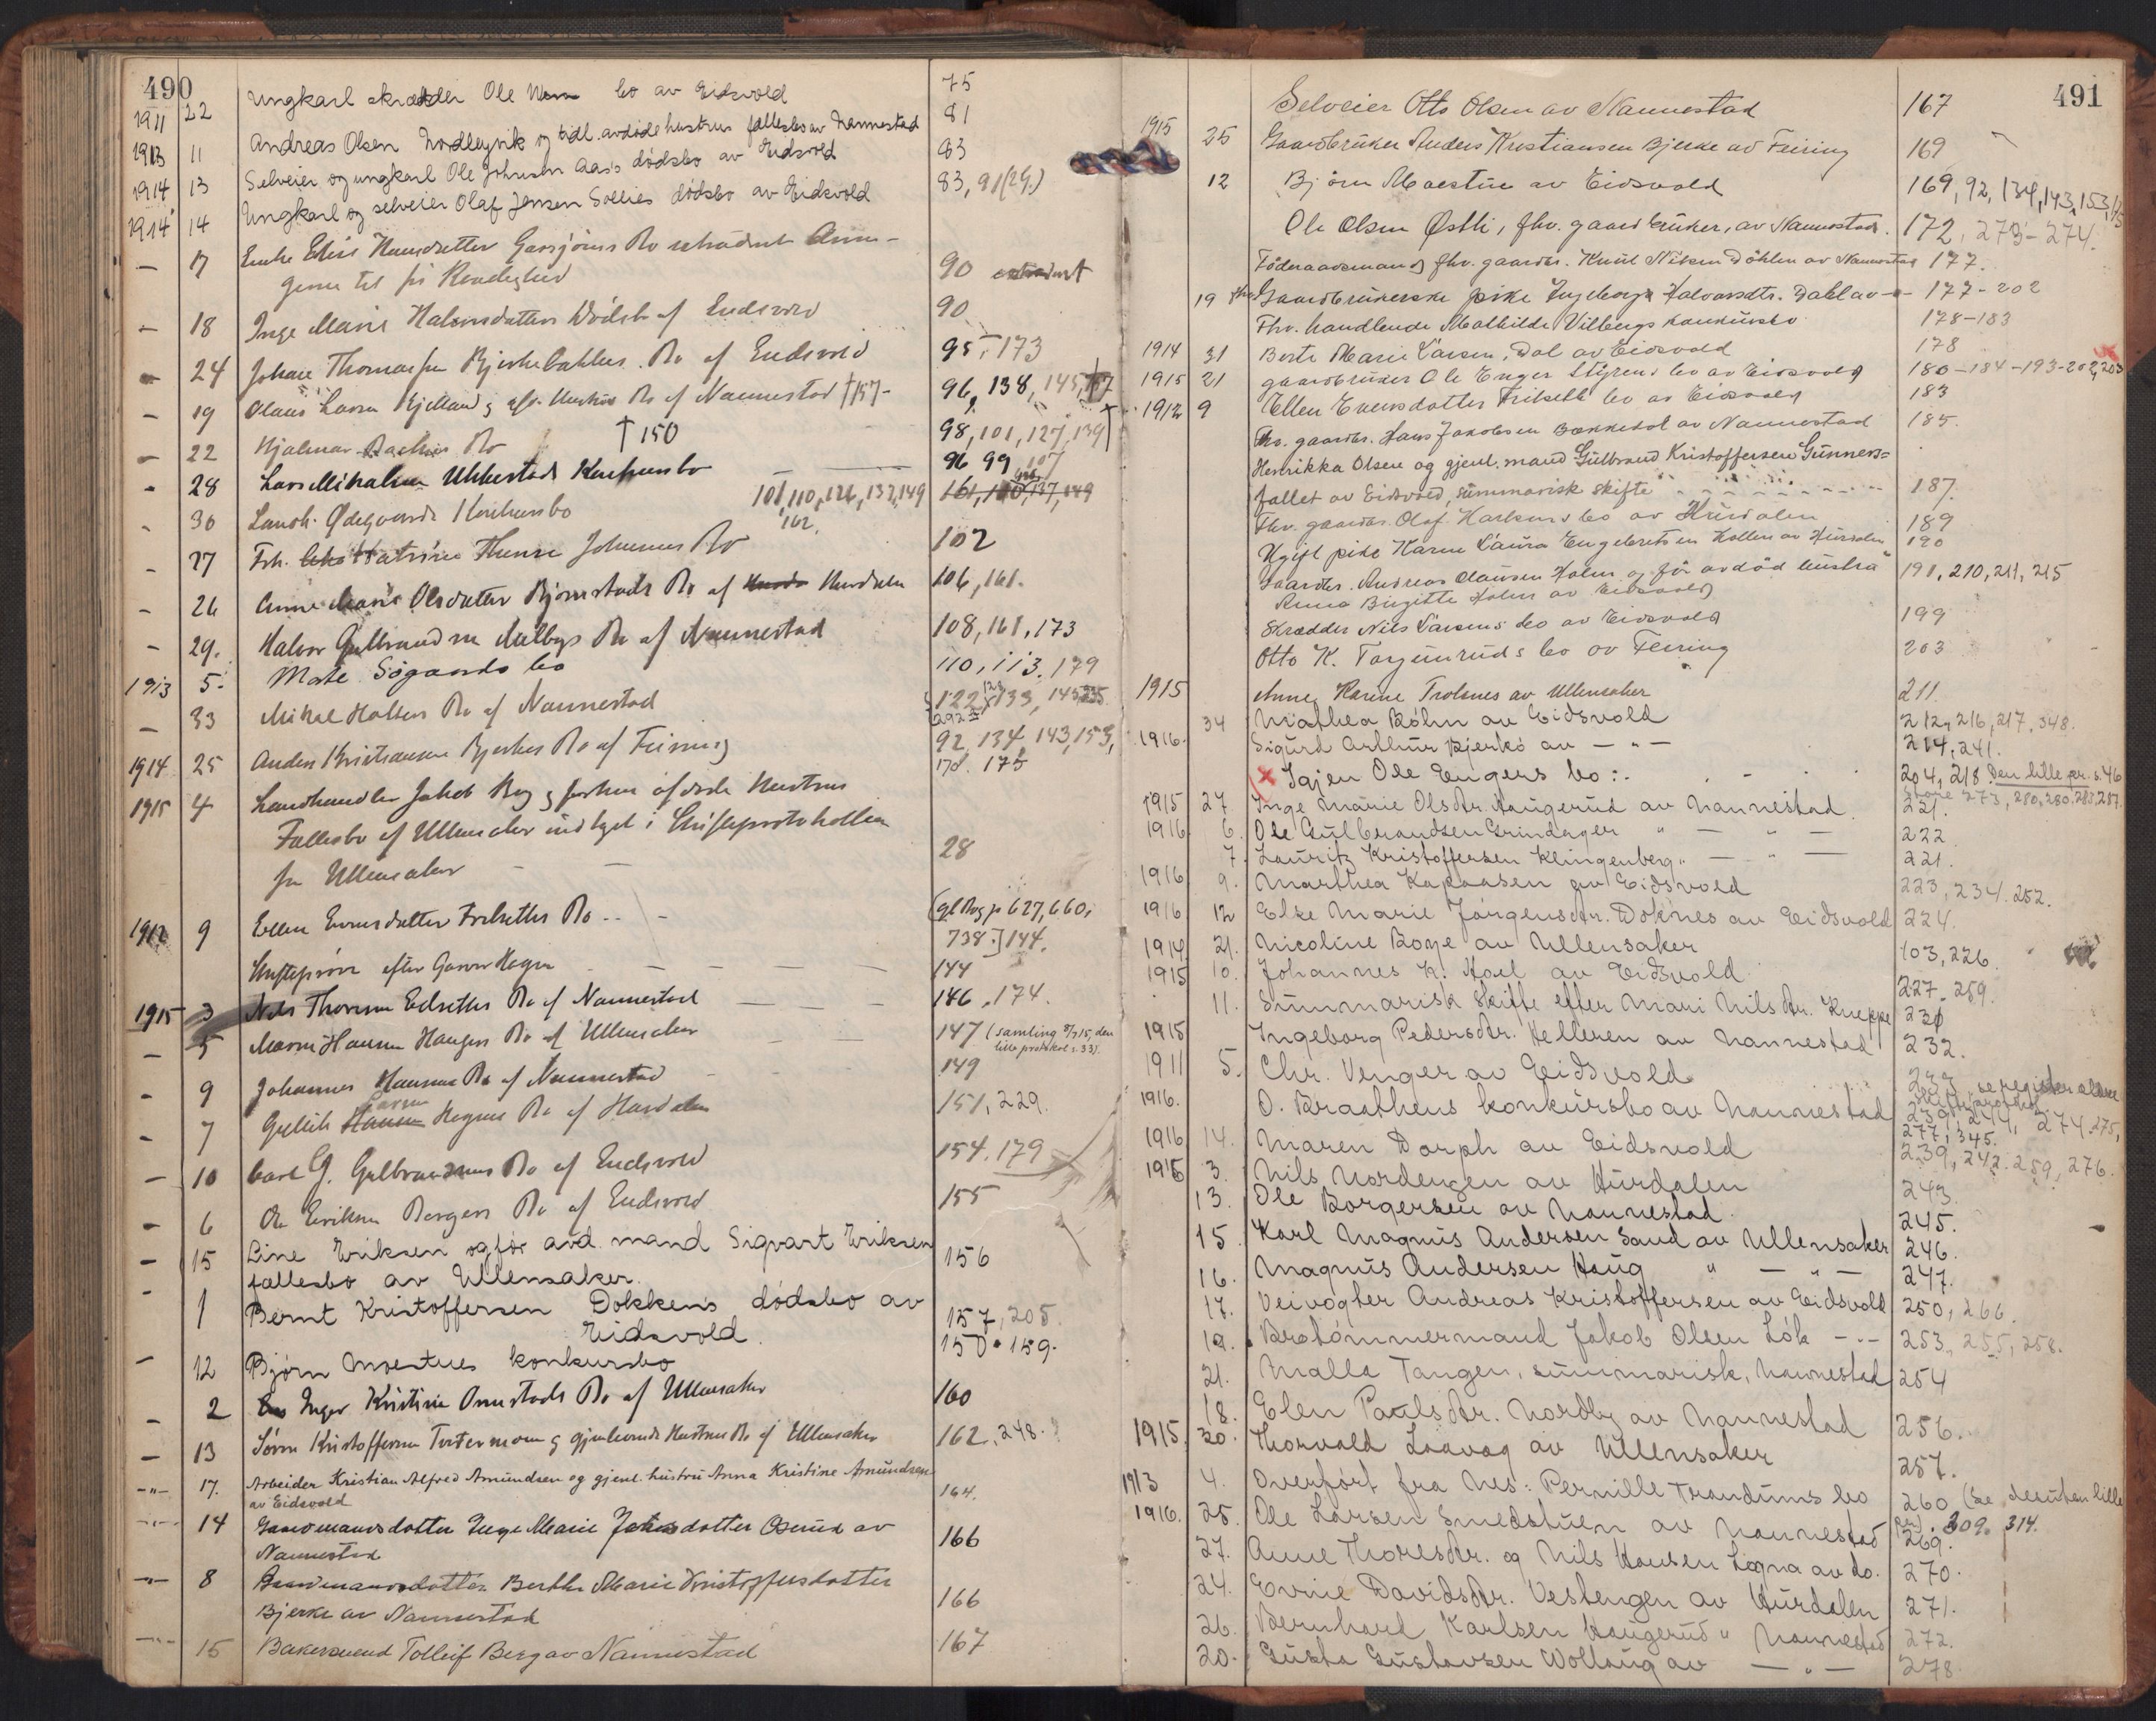 490
1911 22 Ungkarl skrædder Ole bo av Eidsvold 75
1913 11 Andreas Olsen Nordlegvik og tidl. avdøde hustrus fællesbo av Nannestad 81
1914 13 Selveier og ungkarl Ole Johnsen Aas's dødsbo av Eidsvold 83
1914 14 Ungkarl og selveier Olaf Jensen Sollies dødsbo av Eidsvold 83, 91(29.)
— 17 Enke Eline Hansdatter Bo
90
— 18 Inge Marie Dødsbo af Eidsvold 90
— 24 Johan Thomassen Bo af Eidsvold 95 - 173
— 19 Olaus Larsen og Bo af Nannestad † 157 - 96, 138, 145, 157
— 22 Hjalmar Bo † 150 98, 101, 127, 139
- 28 Lars Mikalsen Ukkestads Konkursbo 96 99 107
101, 110, 126, 132, 149
- 30 Landh. Ødegaards Konkursbo 162.
- 27 Johnsens Bo 102
- 26 Anne Marie Olsdatter Bjørnstads Bo af Hurdalen 106, 161.
- 29. Halvor Gulbrandsen Bo af Nannestad 108, 161, 173
1913 5. Marte Søgaards bo 110, 113, 179
— 33 Mikal Holters Bo af Nannestad 122, 133, 145
1914 25 Anders Kristiansen Bjerkes Bo af Feiring 92, 134, 143, 153,
178. 175
1915 4 Landhandler Jakob og afdøde Hustrus
Fællesbo af Ullensaker indtaget i Skifteprotokollen
for Ullensaker 28
1912 9 Ellen Evensdatter Frilseths Bo - - (gl. Prot. p. 627, 660,
738.] 144.
efter 144
1915 3 Nils Thoresen Bo af Nannestad 146, 174.
— 5 Hansen Haugers Bo af Ullensaker 147 (samling 8/7 15, den
lille protokol s. 33).
- 9 Johannes Hansens Bo af Nannestad 149
- 7 Larsen Bo af Hurdalen 151, 229.
— 10 Carl G. Gulbrandsens Bo af Eidsvold 154. 179
- 6 Ole Eriksen Bergers Bo af Eidsvold 155
— 15 Line Eriksen og før avd. mand Sigvart Eriksen
fællesbo av Ullensaker. 156
1 Bernt Kristoffersen Dokkens dødsbo av
Eidsvold. 157, 205.
— 12 Bjørn Moestues konkursbo 150 • 159.
— 2 Inger Kristine Onnstads Bo af Ullensaker 160
— 13 Søren Kristoffersen og gjenlevende Hustrus Bo af Ullensaker 162, 248.
—"— 17. Arbeider Kristian Alfred Amundsen og gjenl. hustru Anna Kristine Amundsen
av Eidsvold 164.
14 Gaardmandsdatter Inge Marie Oserud av
Nannestad 166
—"— 8 Gaardmandsdatter Berthe Marie Kristoffersdatter
Bjerke av Nannestad 166
15 Bakersvend Tolleif Berg av Nannestad 167
491
Selveier Otto Olsen av Nannestad 167
1915 25 Gaardbruker Anders Kristiansen Bjerke av Feiring 169
12 Bjørn Moestue av Eidsvold 169, 92, 134, 143, 153,
Ole Olsen Østli, fhv. gaardbruker, av Nannestad. 172, 273 - 274.
Føderaadsmand og fhv. gaardbr. Knut Nilsen Døhlen av Nannestad 177.
19 Gaardbrukerske pike Ingeborg Halvorsdtr. Dahl av —"— 177 - 202
Fhv. handlende Mathilde Vilbergs konkursbo 178-183
1914 31 Berte Marie Larsen, Dal av Eidsvold 178
1915 21 gaardbruker Ole Enger Styrens bo av Eidsvold 180-184-193-202, 203
1912 9 Ellen Evensdatter Frilseth bo av Eidsvold 183
Fhv. gaardbr. Hans Jakobsen Bækkedal av Nannestad 185.
Henrikka Olsen og gjenl. mand Gulbrand Kristoffersen Gunners=
fallet av Eidsvold, summarisk skifte 187.
Fhv. gaardbr. Olaf bo av Hurdalen 189
Ugift pike Karen Laura Engebretsen Hollen av Hurdalen 190
Gaardbr. Andreas Clausen Holm og før avdød hustru
Anna Birgitte Holm av Eidsvold 191, 210, 211, 215
Skrædder Nils Larsens bo av Eidsvold 199
Otto K. Torgunruds bo av Feiring 203
1915 Anne Karine Trolsnes av Ullensaker 211
34 Mathea Bøhn av Eidsvold 212, 216, 217, 348.
1916. Sigurd Arthur Bjerke av — " — 214, 241.
x Igjen Ole Engers bo :. 204, 218 Den lille pr. s. 46
273, 280, 280, 283, 287.
1915 27. Inge Marie Olsdtr. Haugerud av Nannestad. 221.
1916 6. Ole Gulbrandsen Grindager " — " — 222
7. Lauritz Kristoffersen Klingenberg " — " — 221.
1916 9. Marthea Kapaasen av Eidsvold 223, 234. 252.
1916 12 Else Marie Jørgensdtr. Doknes av Eidsvold 224.
1914 21. Nicoline Borge av Ullensaker 103, 226.
1915 10. Johannes K. Hoel av Eidsvold 227. 259.
11. Summarisk skifte efter Mari Nilsdtr. Kneppe 230
1915 Ingeborg Pedersdtr. Helleren av Nannestad 232.
1911 5. Chr. Venger av Eidsvold 233, se register
1916. O. Braathens konkursbo av Nannestad 239, 244, 274, 275,
277, 345.
1916 14. Maren Dorph av Eidsvold 239, 242. 259, 276.
1915 3. Nils Nordengen av Hurdalen 243.
13. Ole Borgersen av Nannestad 245.
15. Karl Magnus Andersen Sand av Ullensaker 246.
16. Magnus Andersen Haug " — " — 247.
17. Veivogter Andreas Kristoffersen av Eidsvold 250, 266.
19. Brotømmermand Jakob Olsen Løk — " — 253, 255, 258.
21. Malla Tangen, summarisk, Nannestad 254
18. Elen Paulsdtr. Nordby av Nannestad 256.
1915. 20. Thorvald Laavag av Ullensaker 257.
1913 4. Overført fra Nes: Pernille Trandums bo 260 (se desuten lille
309. 314.
1916. 25. Ole Larsen Smedstuen av Nannestad 269.
27. Anne Thoresdtr. og Nils Hansen Løgna av do. 270.
24. Evine Davidsdtr. Vestengen av Hurdalen 271.
26. Bernhard Karlsen Haugerud " Nannestad 272.
20. Gusta Gustavsen Wollaug av — " — 278.